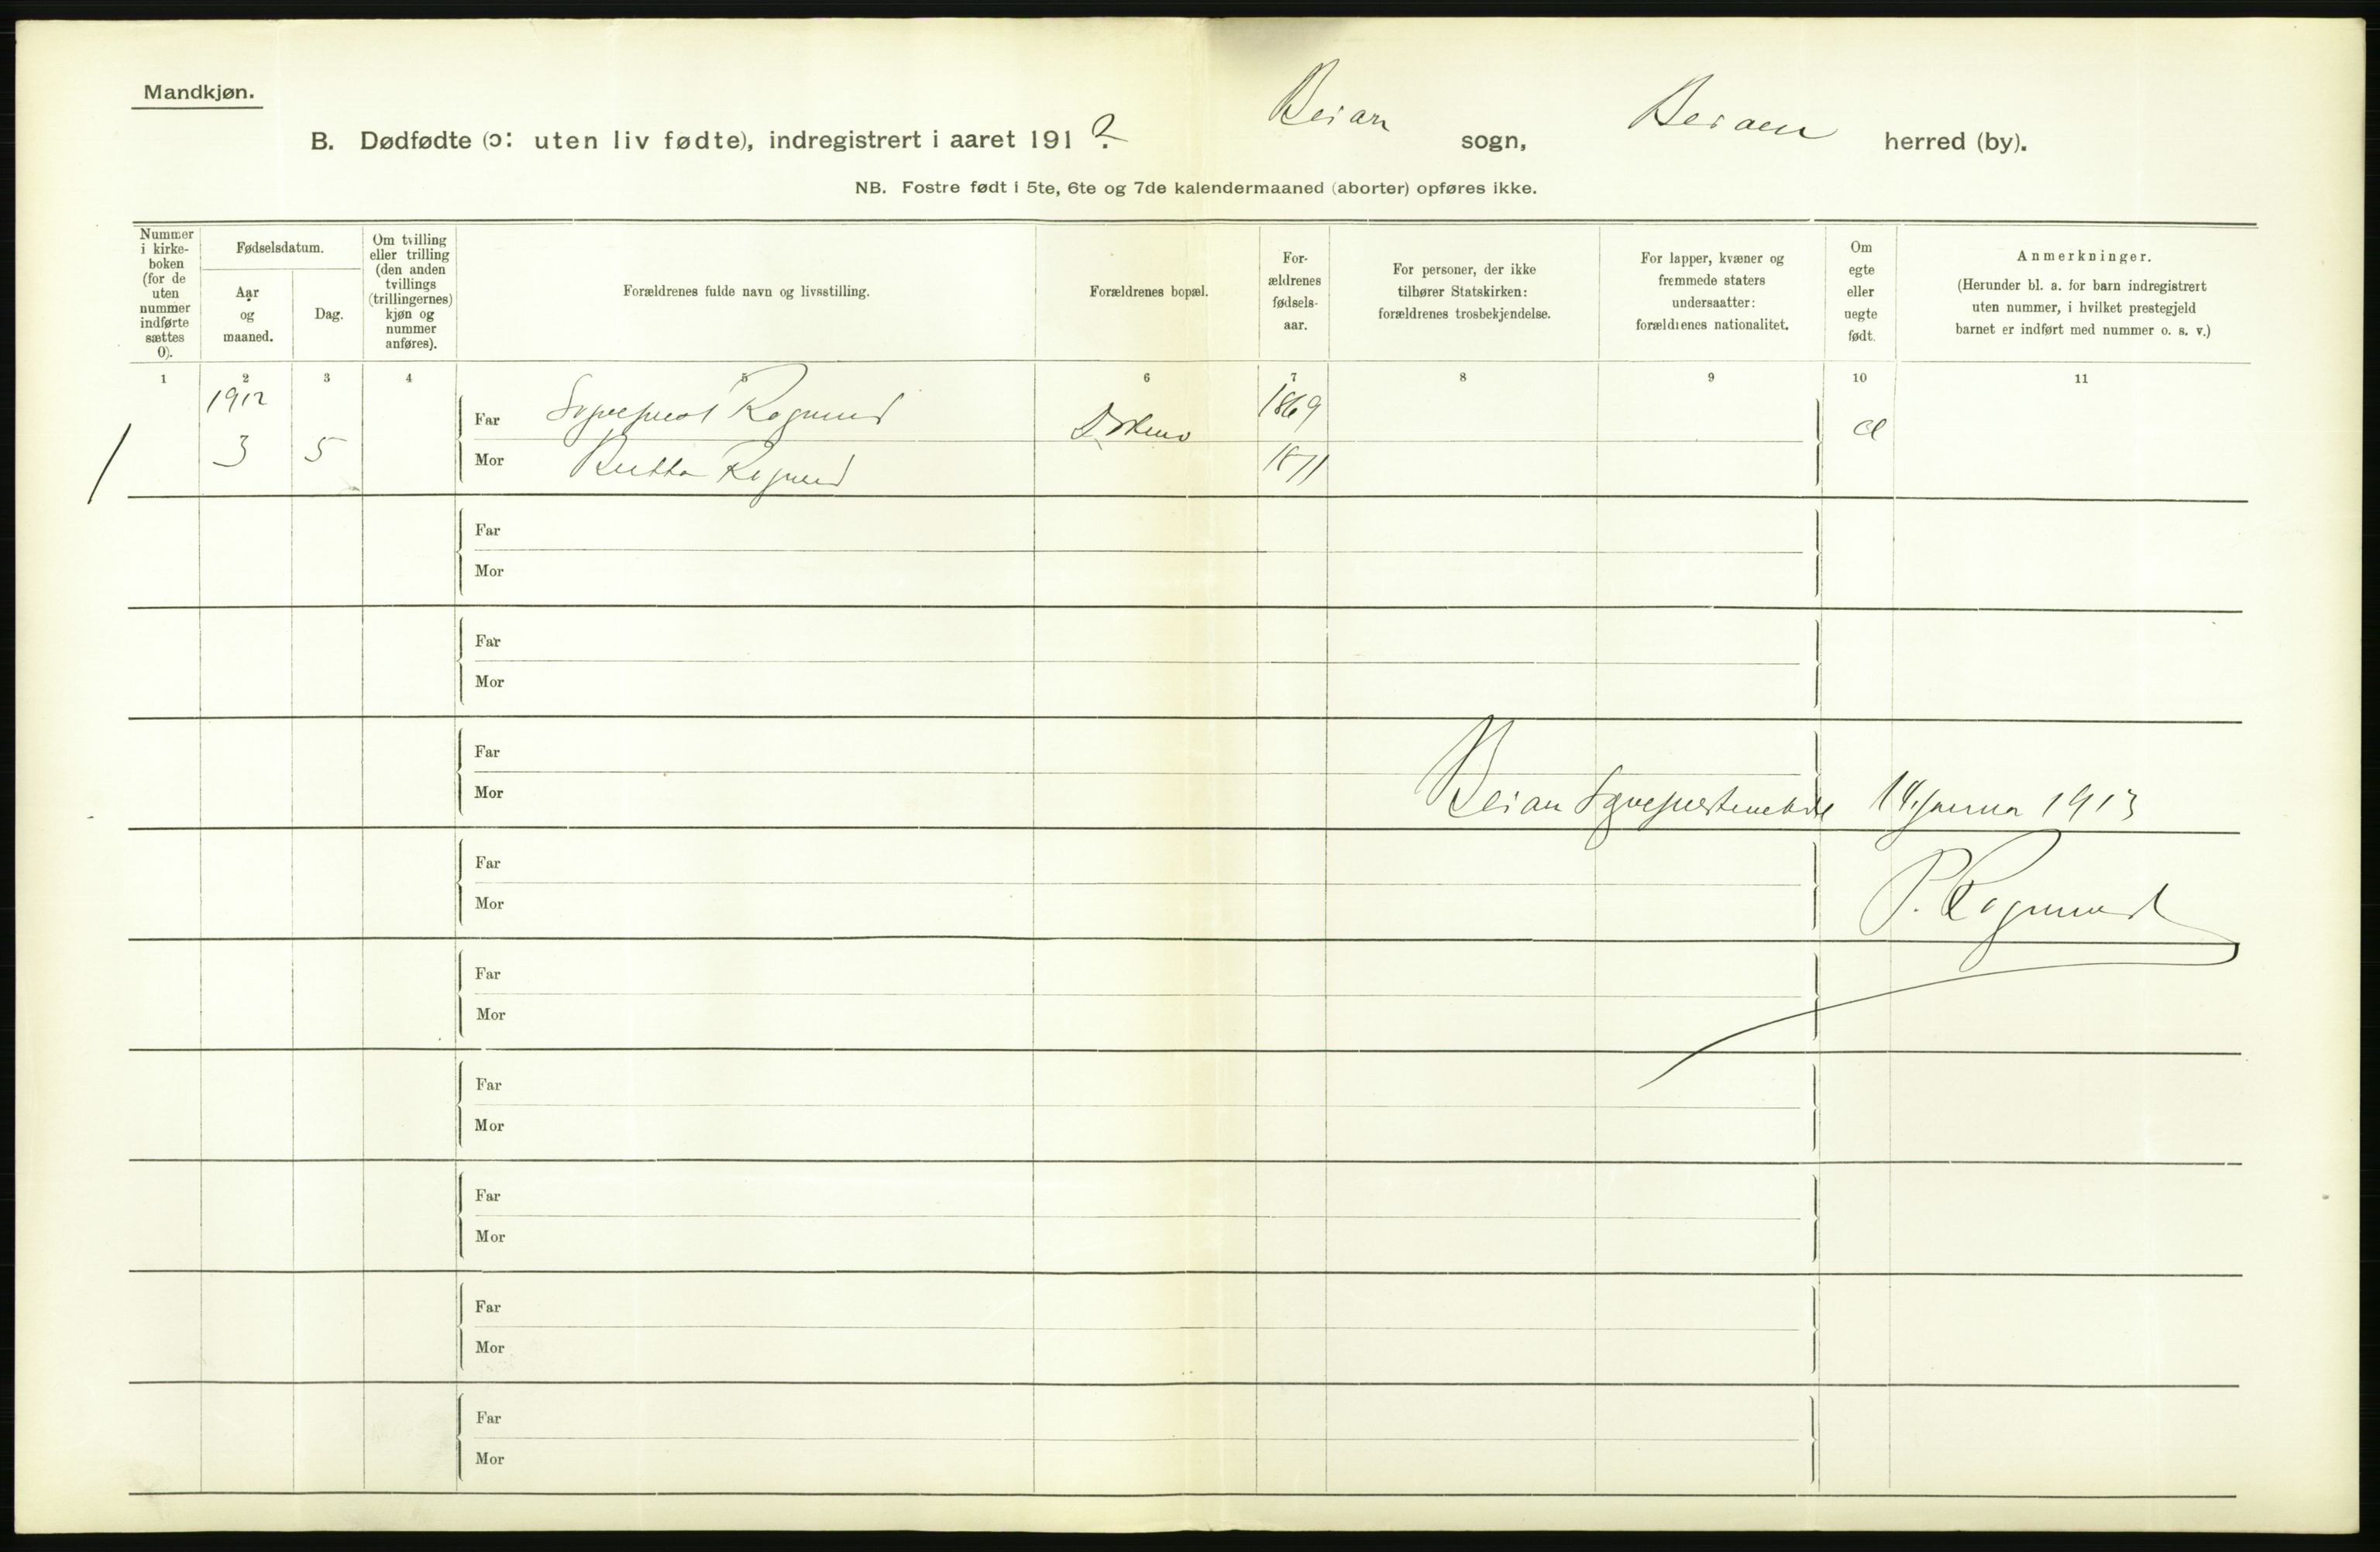 Mandkjøn.
B. Dødfødte (ɔ: uten liv fødte), indregistrert i aaret 1912. Beian sogn, Beiaen herred (by).
NB. Fostre født i 5te, 6te og 7de kalendermaaned (aborter) opføres ikke.
Nummer
i kirke-
boken
(for de
uten
nummer
indførte
sættes
0).
Fødselsdatum.
Aar
og
maaned.
Dag.
Om tvilling
eller trilling
(den anden
tvillings
(trillingernes)
kjøn og
nummer
anføres).
Forældrenes fulde navn og livsstilling.
Forældrenes bopæl.
For-
ældrenes
fødsels-
aar.
For personer, der ikke
tilhører Statskirken:
forældrenes trosbekjendelse.
For lapper, kvæner og
fremmede staters
undersaatter:
forældrenes nationalitet.
Om
egte
eller
uegte
født.
Anmerkninger.
(Herunder bl. a. for barn indregistrert
uten nummer, i hvilket prestegjeld
barnet er indført med nummer o. s. v.)
1 2 3 4 5 6 7 8 9 10 11
1912
Far Sogneprest Rognerud 1869
1 3 5
Mor Rognerud 1871
Far
Mor
Far
Mor
Far
Mor
Beian 14 januar 1913
Far
P. Rognerud
Mor
Far
Mor
Far
Mor
Far
Mor
Far
Mor
Far
Mor